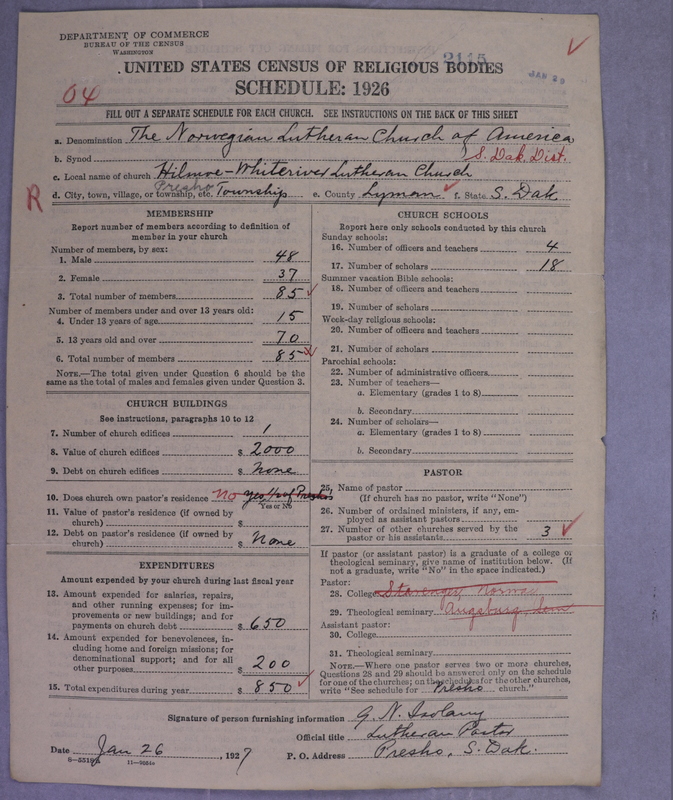 DEPARTMENT OF COMMERCE
BUREAU OF THE CENSUS
WASHINGTON
JAN 29
UNITED STATES CENSUS OF RELIGIOUS BODIES
SCHEDULE: 1926
04
FILL OUT A SEPARATE SCHEDULE FOR EACH CHURCH. SEE INSTRUCTIONS ON THE BACK OF THIS SHEET
a. Denomination The Norwegian Lutheran Church of America
b. Synod S. Dak. Dist.
c. Local name of church Hilmoe-Whiteriver Lutheran Church
R d. City, town, village, or township, etc. Presho Township e. County Lyman f. State S. Dak
MEMBERSHIP
Report number of members according to definition of
member in your church
Number of members, by sex:
1. Male 48
2. Female 37
3. Total number of members 85
Number of members under and over 13 years old:
4. Under 13 years of age 15
5. 13 years old and over 70
6. Total number of members 85
NOTE.—The total given under Question 6 should be the
same as the total of males and females given under Question 3.
CHURCH BUILDINGS
See instructions, paragraphs 10 to 12
7. Number of church edifices 1
8. Value of church edifices $ 2000
9. Debt on church edifices $ None
10. Does church own pastor's residence no yes 1/2 of Presho
Yes or No
11. Value of pastor's residence (if owned by
church) $
12. Debt on pastor's residence (if owned by
church) $ None
EXPENDITURES
Amount expended by your church during last fiscal year
13. Amount expended for salaries, repairs,
and other running expenses; for im-
provements or new buildings; and for
payments on church debt $ 650
14. Amount expended for benevolences, in-
cluding home and foreign missions; for
denominational support; and for all
other purposes $ 200
15. Total expenditures during year $ 850
CHURCH SCHOOLS
Report here only schools conducted by this church
Sunday schools:
16. Number of officers and teachers 4
17. Number of scholars 18
Summer vacation Bible schools:
18. Number of officers and teachers
19. Number of scholars
Week-day religious schools:
20. Number of officers and teachers
21. Number of scholars
Parochial schools:
22. Number of administrative officers
23. Number of teachers—
a. Elementary (grades 1 to 8)
b. Secondary
24. Number of scholars—
a. Elementary (grades 1 to 8)
b. Secondary
PASTOR
25. Name of pastor
(If church has no pastor, write "None")
26. Number of ordained ministers, if any, em-
ployed as assistant pastors
27. Number of other churches served by the
pastor or his assistants 3
If pastor (or assistant pastor) is a graduate of a college or
theological seminary, give name of institution below. (If
not a graduate, write "No" in the space indicated.)
Pastor:
28. College Stavanger Normal
29. Theological seminary Augsburg Sem
Assistant pastor:
30. College
31. Theological seminary
NOTE.—Where one pastor serves two or more churches,
Questions 28 and 29 should be answered only on the schedule
for one of the churches; on the schedules for the other churches,
write "See schedule for Presho church."
Signature of person furnishing information G. N.
Official title Lutheran Pastor
Date Jan 26, 1927 P. O. Address Presho, S. Dak.